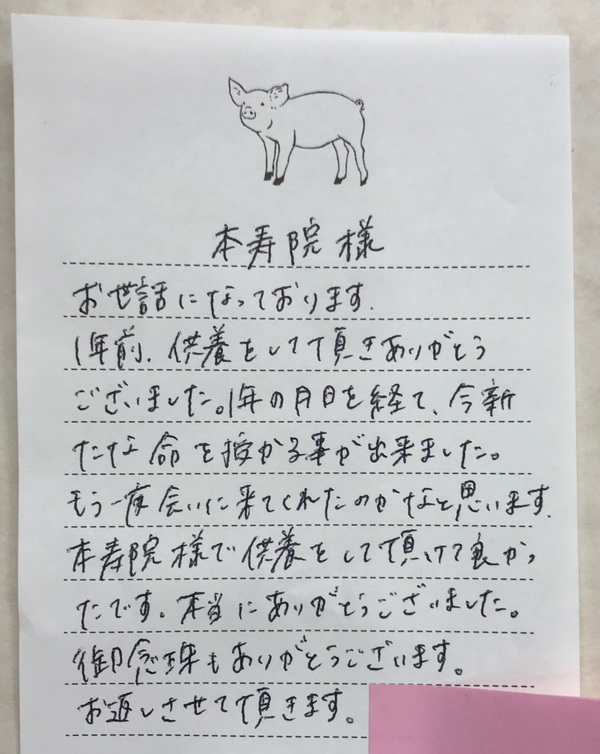 本寿院様
お世話になっております.
1年前、供養をして頂きありがとう
ございました。1年の月日を経て、今新
たな命を授かる事が出来ました。
もう一度会いに来てくれたのかなと思います.
本寿院様で供養をして頂けて良かっ
たです。本当にありがとうございました。
御念珠もありがとうございます。
お返しさせて頂きます。